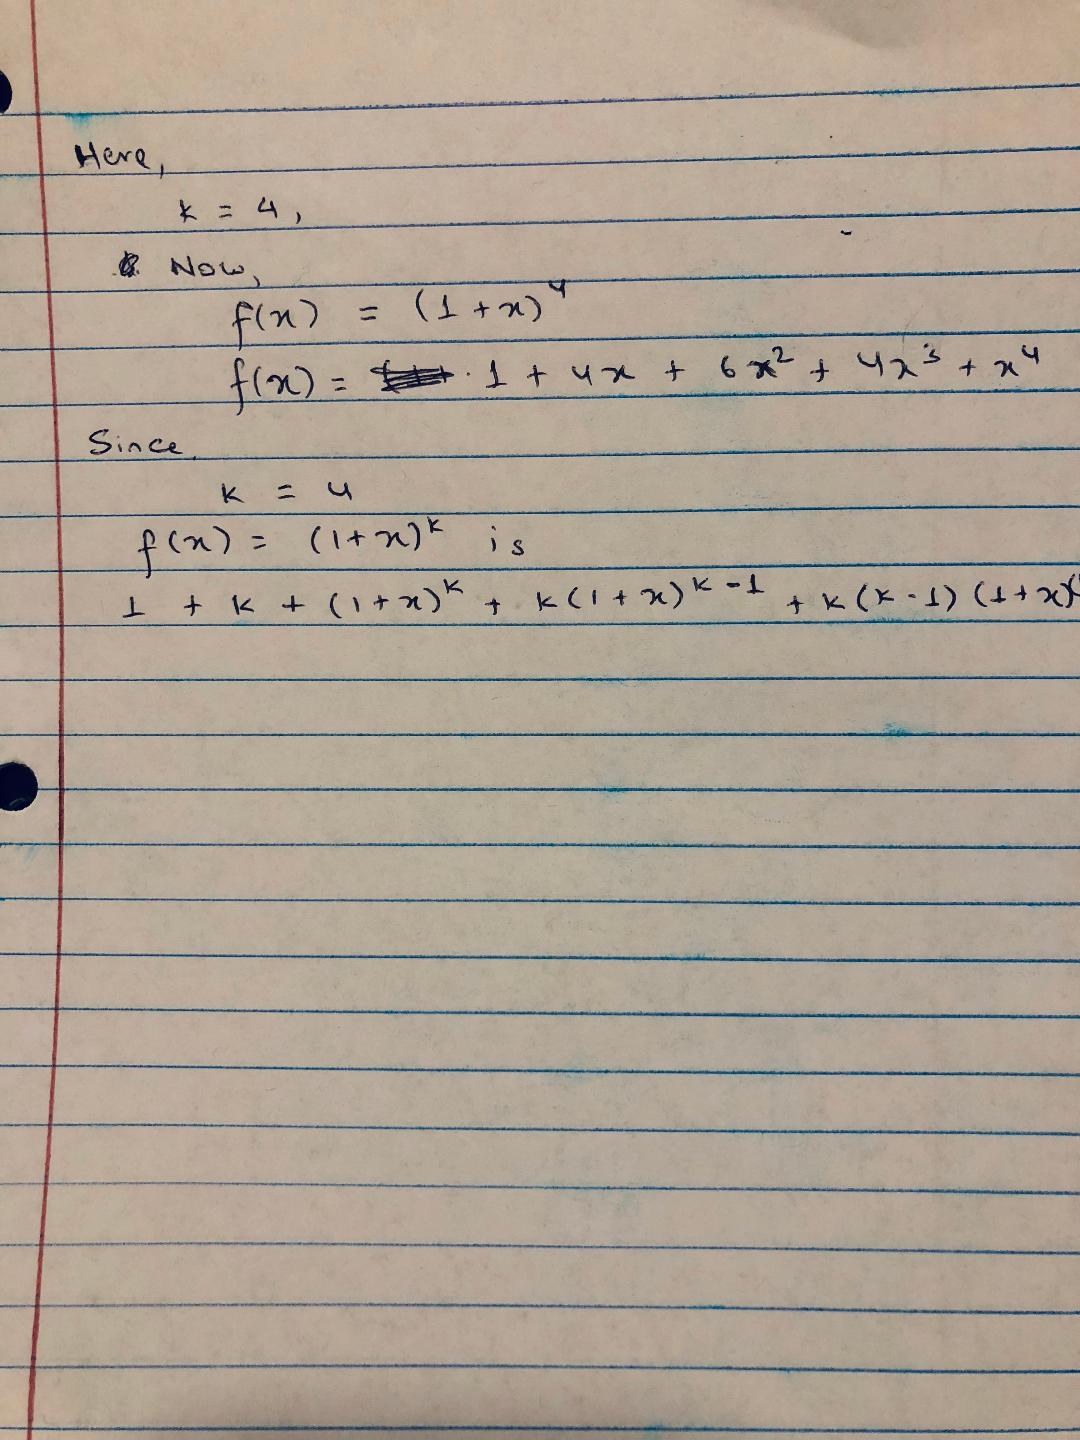 Here,
k = 4,
Now,
f(x) = (1+x)⁴
f(x) = 1 + 4x + 6x² + 4x³ + x⁴
Since,
k = 4
f(x) = (1+x)ᵏ is
1 + k + (1+x)ᵏ + k(1+x)ᵏ⁻¹ + k(k-1) (1+x)